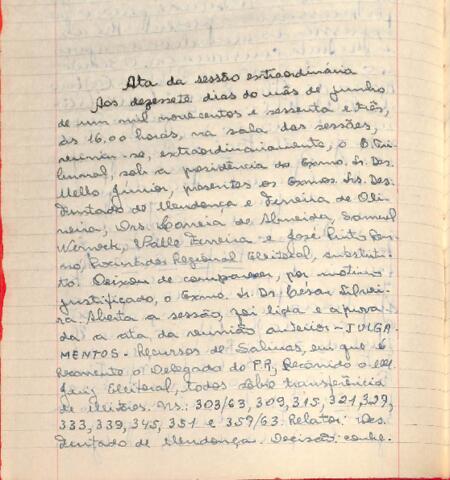 Ata da sessão extraordinária
Aos dezessete dias do mês de junho
de um mil novecentos e sessenta e três,
às 16.00 horas, na sala das sessões,
reuniu-se, extraordinariamente, o E. Tri-
bunal, sob a presidência do Exmo. Sr. Des.
Mello Junior, presentes os Exmos. Srs. Des.
Furtado de Mendonça e Ferreira de Oli-
veira, Drs. Correia de Almeida, Samuel
Werneck, Valle Ferreira e José Pinto Ren-
nó, Procurador Regional Eleitoral, substitu-
to. Deixou de comparecer, por motivo
justificado, o Exmo. Sr. Dr. César Silvei-
ra. Aberta a sessão, foi lida e aprova-
da a ata da reunião anterior - JULGA-
MENTOS. Recursos de Salinas, em que é
Recorrente o Delegado do P.R, Recorrido o MM.
Juiz Eleitoral, todos sôbre transferência
de eleitores. Ns.: 303/63, 309, 315, 321, 329,
333, 339, 345, 351 e 359/63. Relator: Des.
Furtado de Mendonça. Decisão: conhe-